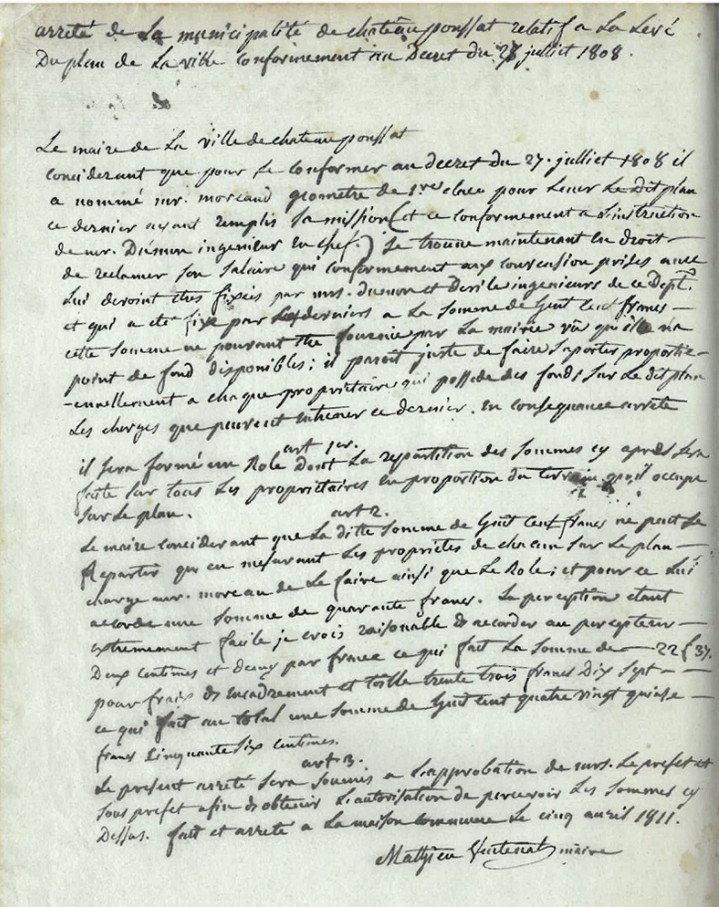 arreté de La municipalité de chateauponssat relatif a La Levé
Du plan de La ville conforméement au Decret du 27 juillet 1808.
Le maire de La ville de chateauponssat
considerant que pour Se Conformer au decret du 27. juillet 1808 il
a nommé mr. moreaud geometre de 1re classe pour Lever Le dit plan
ce dernier ayant remplis Sa mission (et ce conformement a L'instruction
de mr. ingenieur en chef.) Se trouve maintenant en droit
de reclamer Son Salaire qui conformement aux convension prises avec
Lui devoint etres fixées par mrs. et ingenieurs de ce Dept.
et qui a eté fixé par Les derniers a La Somme de huit Cent francs
cette Somme ne pouvant etre fournie par La mairie vû qu'elle na
point de fond disponibles; il paroit juste de faire Suporter proportio-
-nnellement a chaque propriétaire qui possede des fonds Sur Le dit plan
Les charges que peuvent entrener ce dernier. en conséquance arrete
art 1er.
il Sera formé un Role Dont La repartition des Sommes cy après Sera
faite Sur tous Les propriétaires en proportion du terrain qu'il occupe
Sur Le plan.
art 2.
Le maire considerant que La ditte Somme de huit Cent francs ne peut Se
Repartir qu'en mesurant Les propriétés de chacun Sur Le plan
charge mr. moreau de Le faire ainsi que Le Role; et pour ce Lui
accorde une Somme de quarante francs. La perception etant
extremement facile je crois raisonable d'accorder au percepteur
Deux centimes et demy par franc ce qui fait La Somme de 22 f 37.
pour frais d'encadrement et toille trente trois francs Dix Sept
ce qui fait au total une Somme de huit Cent quatre vingt quinse
francs Cinquante Six centimes.
art 3.
Le present arreté Sera Soumis a L'approbation de mrs. Le prefet et
Sous prefet afin d'obtenir L'autorisation de percevoir Les Sommes cy
Dessus. fait et arreté a La maison Commune Le cinq avril 1811.
Mathieu maire